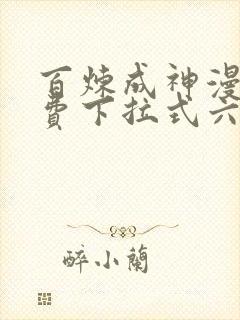 百炼成神漫
费下拉式六
醉小蘭